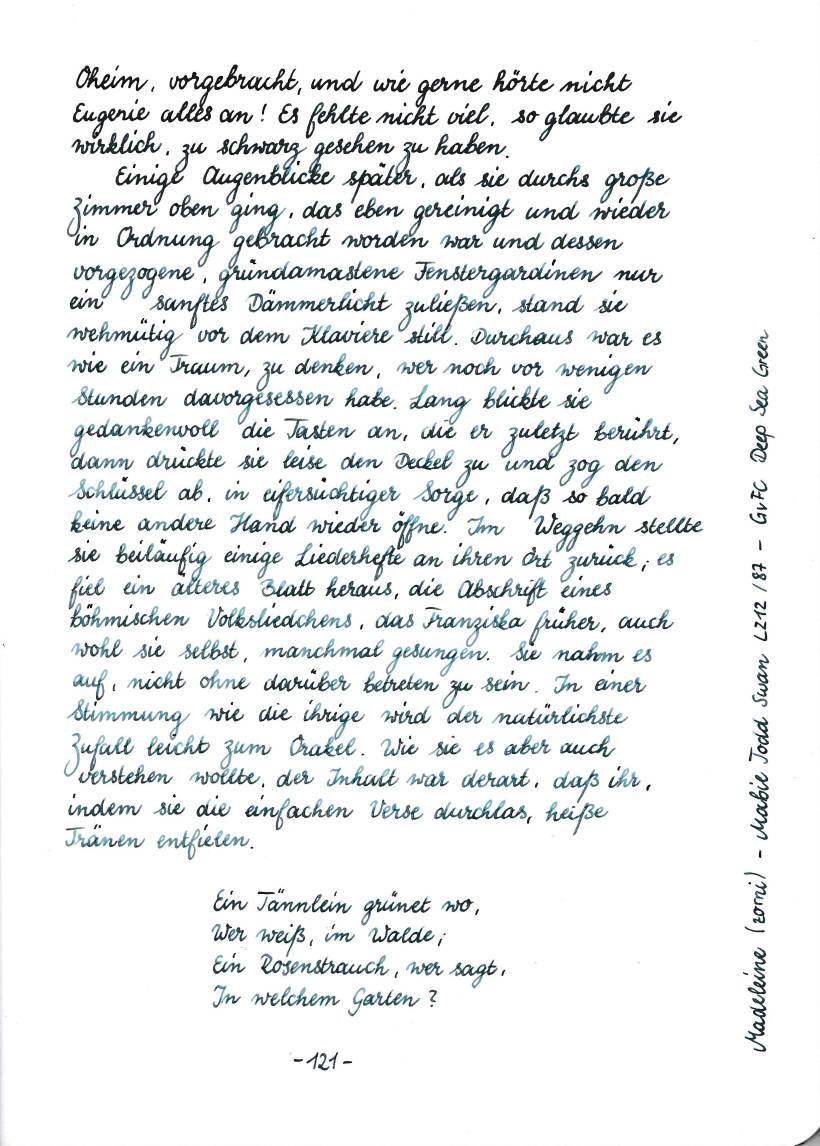 Oheim, vorgebracht, und wie gerne hörte nicht
Eugenie alles an! Es fehlte nicht viel, so glaubte sie
wirklich, zu schwarz gesehen zu haben.
Einige Augenblicke später, als sie durchs große
Zimmer oben ging, das eben gereinigt und wieder
in Ordnung gebracht worden war und dessen
vorgezogene, gründamastene Fenstergardinen nur
ein sanftes Dämmerlicht zuließen, stand sie
wehmütig vor dem Klaviere still. Durchaus war es
wie ein Traum, zu denken, wer noch vor wenigen
Stunden davorgesessen habe. Lang blickte sie
gedankenvoll die Tasten an, die er zuletzt berührt,
dann drückte sie leise den Deckel zu und zog den
Schlüssel ab, in eifersüchtiger Sorge, daß so bald
keine andere Hand wieder öffne. Im Weggehn stellte
sie beiläufig einige Liederhefte an ihren Ort zurück; es
fiel ein älteres Blatt heraus, die Abschrift eines
böhmischen Volksliedchens, das Franziska früher, auch
wohl sie selbst, manchmal gesungen. Sie nahm es
auf, nicht ohne darüber betreten zu sein. In einer
Stimmung wie die ihrige wird der natürlichste
Zufall leicht zum Orakel. Wie sie es aber auch
verstehen wollte, der Inhalt war derart, daß ihr,
indem sie die einfachen Verse durchlas, heiße
Tränen entfielen.
Ein Tännlein grünet wo,
Wer weiß, im Walde;
Ein Rosenstrauch, wer sagt,
In welchem Garten?
-121-
Madeleine (zomi) - Mabie Todd Swan L212/87 - GvFC Deep Sea Green